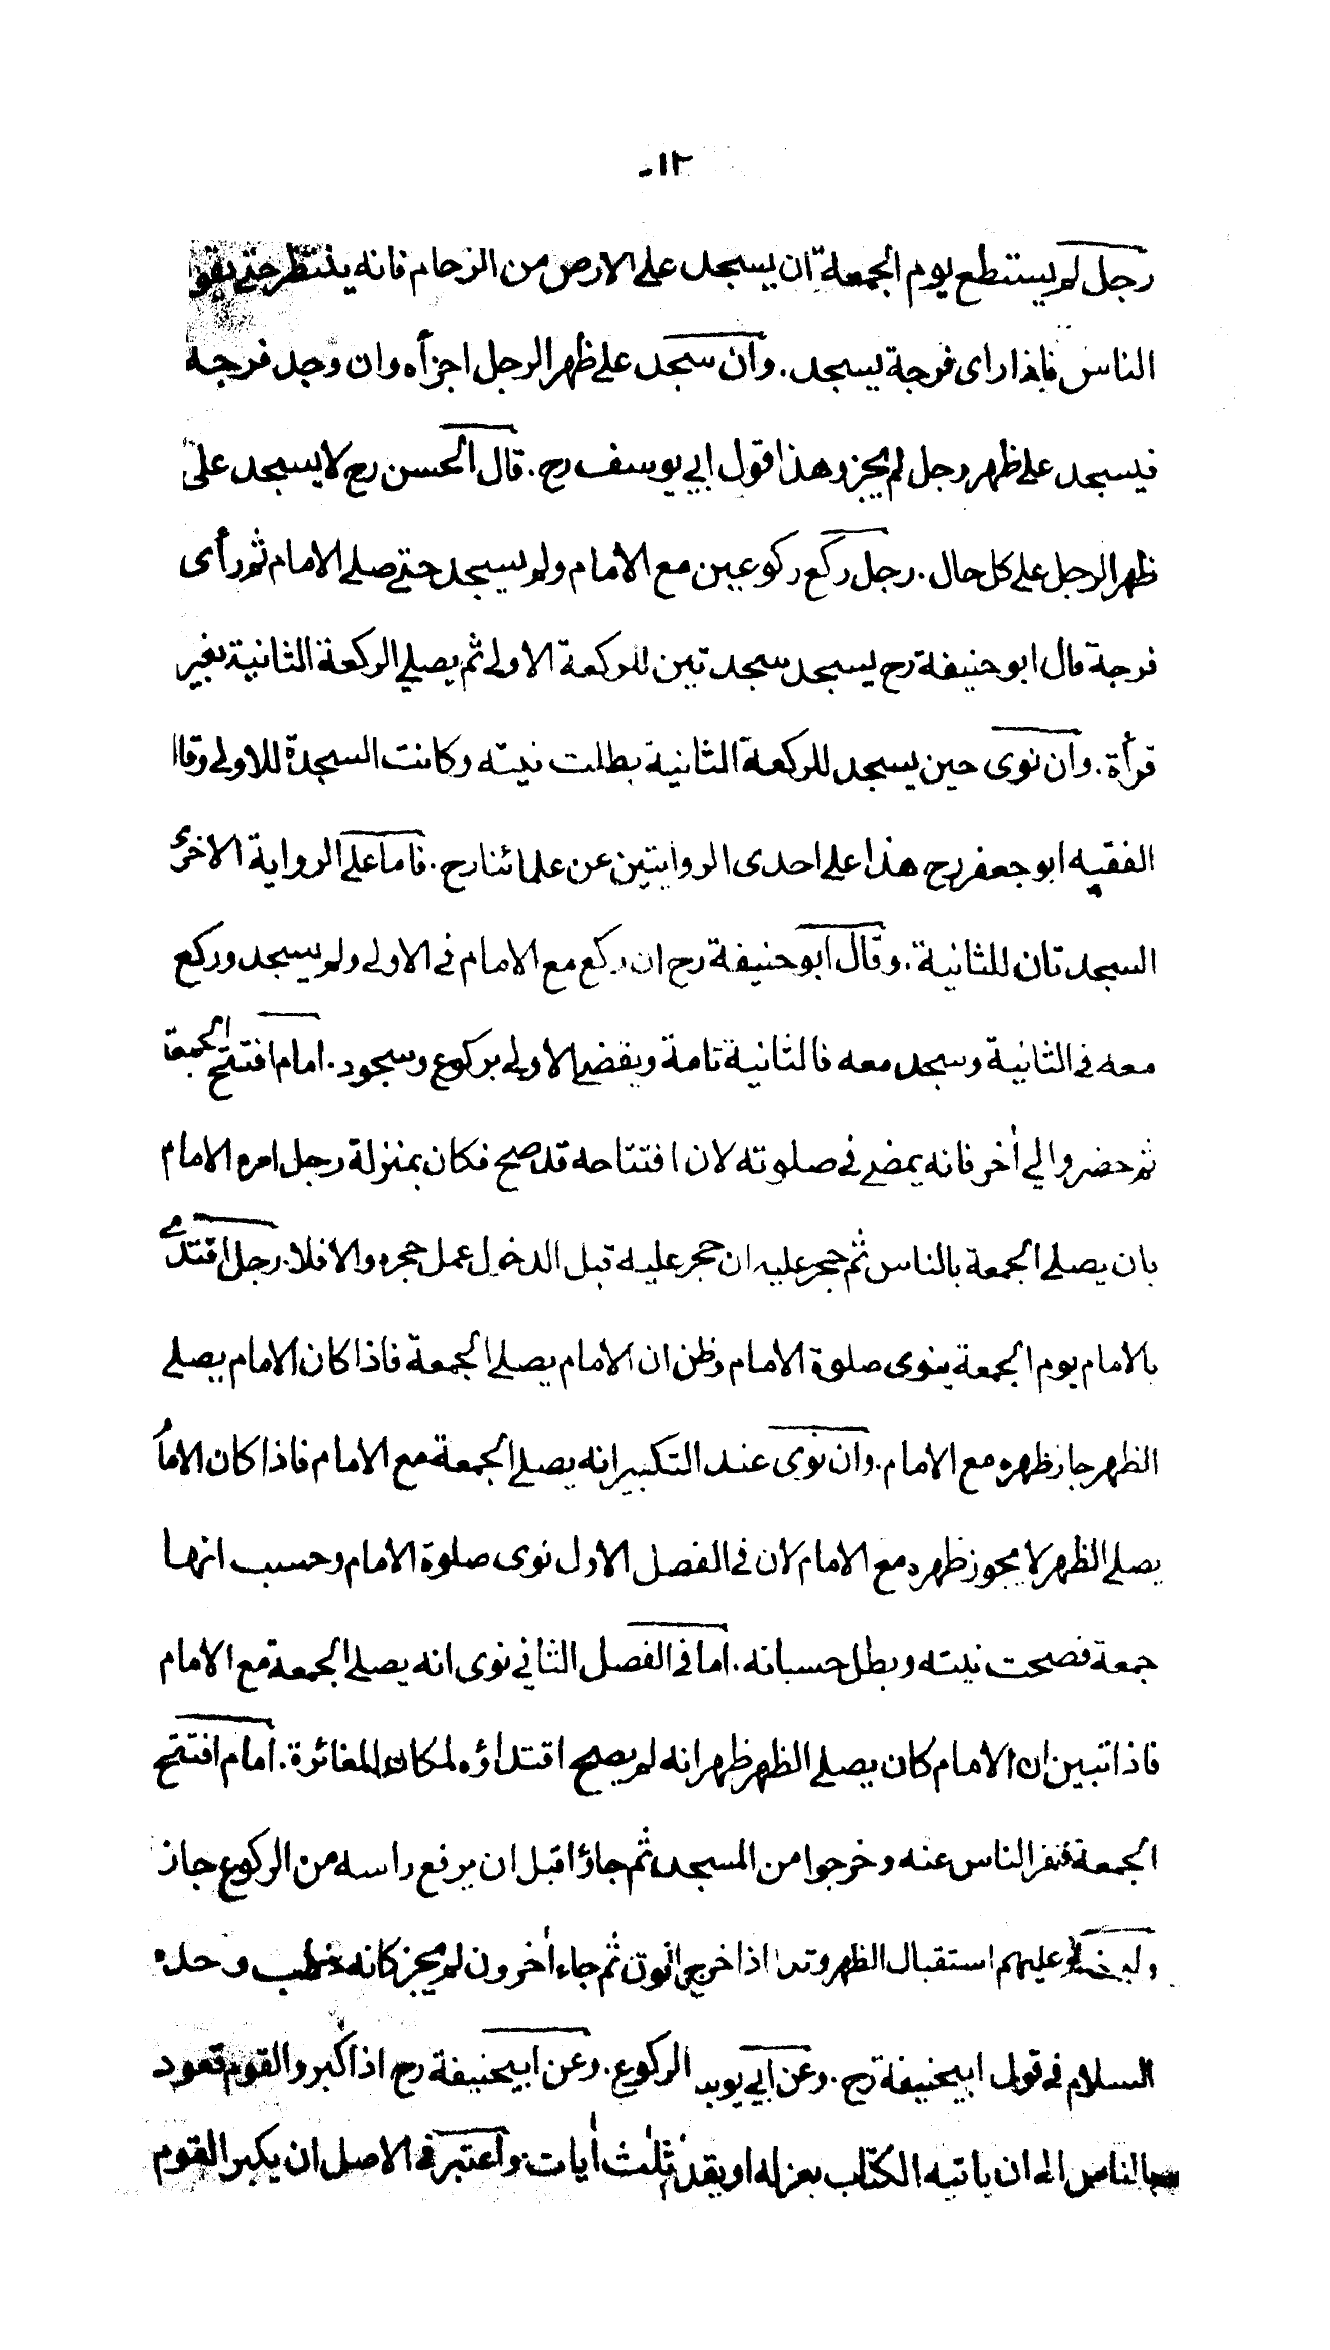 ١٢
رجل لم يستطع يوم الجمعة ان يسجد على الارض من الزحام فانه ينتظر حتى يقو
الناس فاذا راى فرجة يسجد. وان سجد على ظهر الرجل اجزأه وان وجد فرجة
فيسجد على ظهر رجل لم يجز وهذا قول ابي يوسف رح. قال الحسن رح لا يسجد على
ظهر الرجل على كل حال. رجل ركع ركوعين مع الامام ولم يسجد حتى صلى الامام ثم رأى
فرجة قال ابو حنيفة رح يسجد سجدتين للركعة الاولى ثم يصلي الركعة الثانية بغير
قرأة. وان نوى حين يسجد للركعة الثانية بطلت نيته وكانت السجدة للاولى وقال
الفقيه ابو جعفر رح هذا على احدى الروايتين عن علمائنا رح. فاما على الرواية الاخرى
السجدتان للثانية. وقال ابو حنيفة رح ان ركع مع الامام في الاولى ولم يسجد وركع
معه في الثانية وسجد معه فالثانية تامة ويقضي الاولى بركوع وسجود. امام افتتح الجمعة
ثم حضر والي أخر فانه يمضي في صلوته لان افتتاحه قد صح فكان بمنزلة رجل امره الامام
بان يصلي الجمعة بالناس ثم حجر عليه ان حجر عليه قبل الدخول عمل حجره والا فلا. رجل اقتدى
بالامام يوم الجمعة ينوى صلوة الامام وظن ان الامام يصلي الجمعة فاذا كان الامام يصلي
الظهر جاز ظهره مع الامام. وان نوى عند التكبير انه يصلي الجمعة مع الامام فاذا كان الاما
يصلي الظهر لا يجوز ظهره مع الامام لان في الفصل الاول نوى صلوة الامام وحسب انها
جمعة فصحت نيته وبطل حسبانه. اما في الفصل الثاني نوى انه يصلي الجمعة مع الامام
فاذا تبين ان الامام كان يصلي الظهر ظهر انه لم يصح اقتداؤه لمكان المغائرة. امام افتتح
الجمعة فنفر الناس عنه وخرجوا من المسجد ثم جاؤا قبل ان يرفع راسه من الركوع جاز
عليهم استقبال الظهر اذا خرج ثم جاء أخرون لم يجز كانه خطب وحده
السلام في قول ابيحنيفة رح. وعن ابي الركوع. وعن ابيحنيفة رح اذا كبر والقوم قعود
بالناس الى ان ياتيه الكتاب بعزله او يقدم ثلث أيات. واعتبر في الاصل ان يكبر القوم